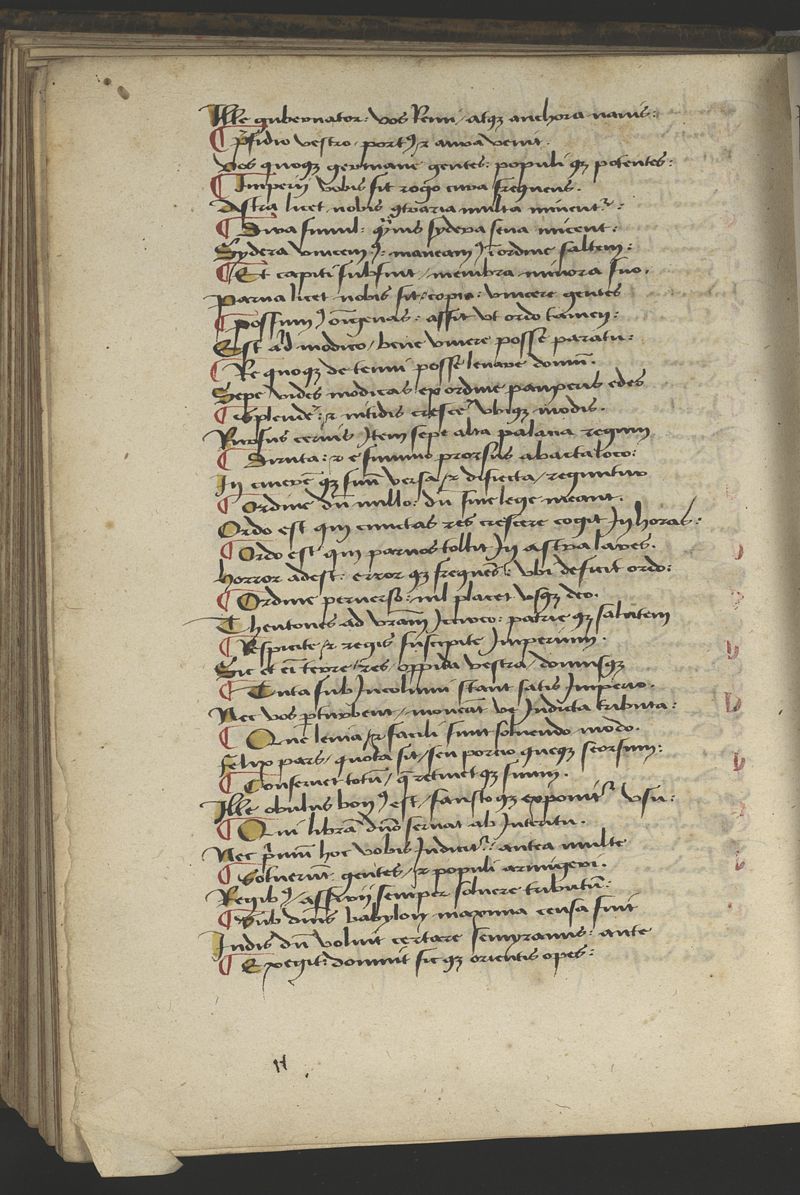 Ille gubernator: vos Remi / atqꝫ anchora nauis:
¶ Pͬsidio vestro portꝰ ⁊ aura venit.
Vos quoqꝫ germane gentes: populi qꝫ potentes:
¶ Imperij vobis sit rogo cura frequens.
Astra licet nobis ꝯtraria multa minentͬ:
¶ Dira simul: quis sydera seua micent:
Sydera vincemꝰ: maneamꝰ ī ordine saltem:
¶ Et capiti subsint / membra minora suo.
Parua licet nobis sit copia: vincere gentes
¶ possumꝰ oīgenas: assit vt ordo tamen:
Est aīd modico / bene viuere posse paratu:
¶ Re quoqꝫ de tenui posse leuare domū.
Sepe vides modicas ex ordine pauperis edes
¶ Splendeͬ: ⁊ nitidis cresceͬ vbiqꝫ modis.
Rursus cernis Item sepe alta palatia regum
¶ Diruta: ⁊ e summo prorsus abacta loco:
In cinerē qꝫ suū versa / ⁊ disiecta / reguntur
¶ Ordine dū nullo: dū sine lege meant.
Ordo est qui cunctas res crescere cogit In horas:
¶ Ordo est qui paruos tollit In astra lares.
Horror adest: error qꝫ frequēs: vbi deficit ordo:
¶ Ordine peruerso: nil placet vsqꝫ deo.
Theutones ad vrām Icirco: patrie qꝫ salutem
¶ Respicite ⁊ regis suscipite Imperium.
Sic et eī terre: res oppida vestra / domusqꝫ
¶ Tuta sub Incolumi stant satis Imperio.
Nec vos ꝑturbent / moueāt ve Indicta tributa:
¶ Que leuia / ⁊ facili sunt soluendo modo.
Felix pars / quota sit / seu portio queqꝫ seorsum:
¶ Conseruet totū / q̄ retinetqꝫ suum.
Ille obulus bonꝰ est / faustoqꝫ exponitͬ vsu:
¶ Qui librā dn̄o seruat ab Interitu.
Nec pͥmū hoc vobis Indicitͬ: antea multe
¶ Soluerūt gentes / ⁊ populi armigeri.
Regibꝰ / assirij semper soluere tributū:
¶ Sub dīnis babylon maxima censa fuit
Indis dū voluit certare semyramis: ante
¶ Exegit: domuit sic qꝫ orientis opes: